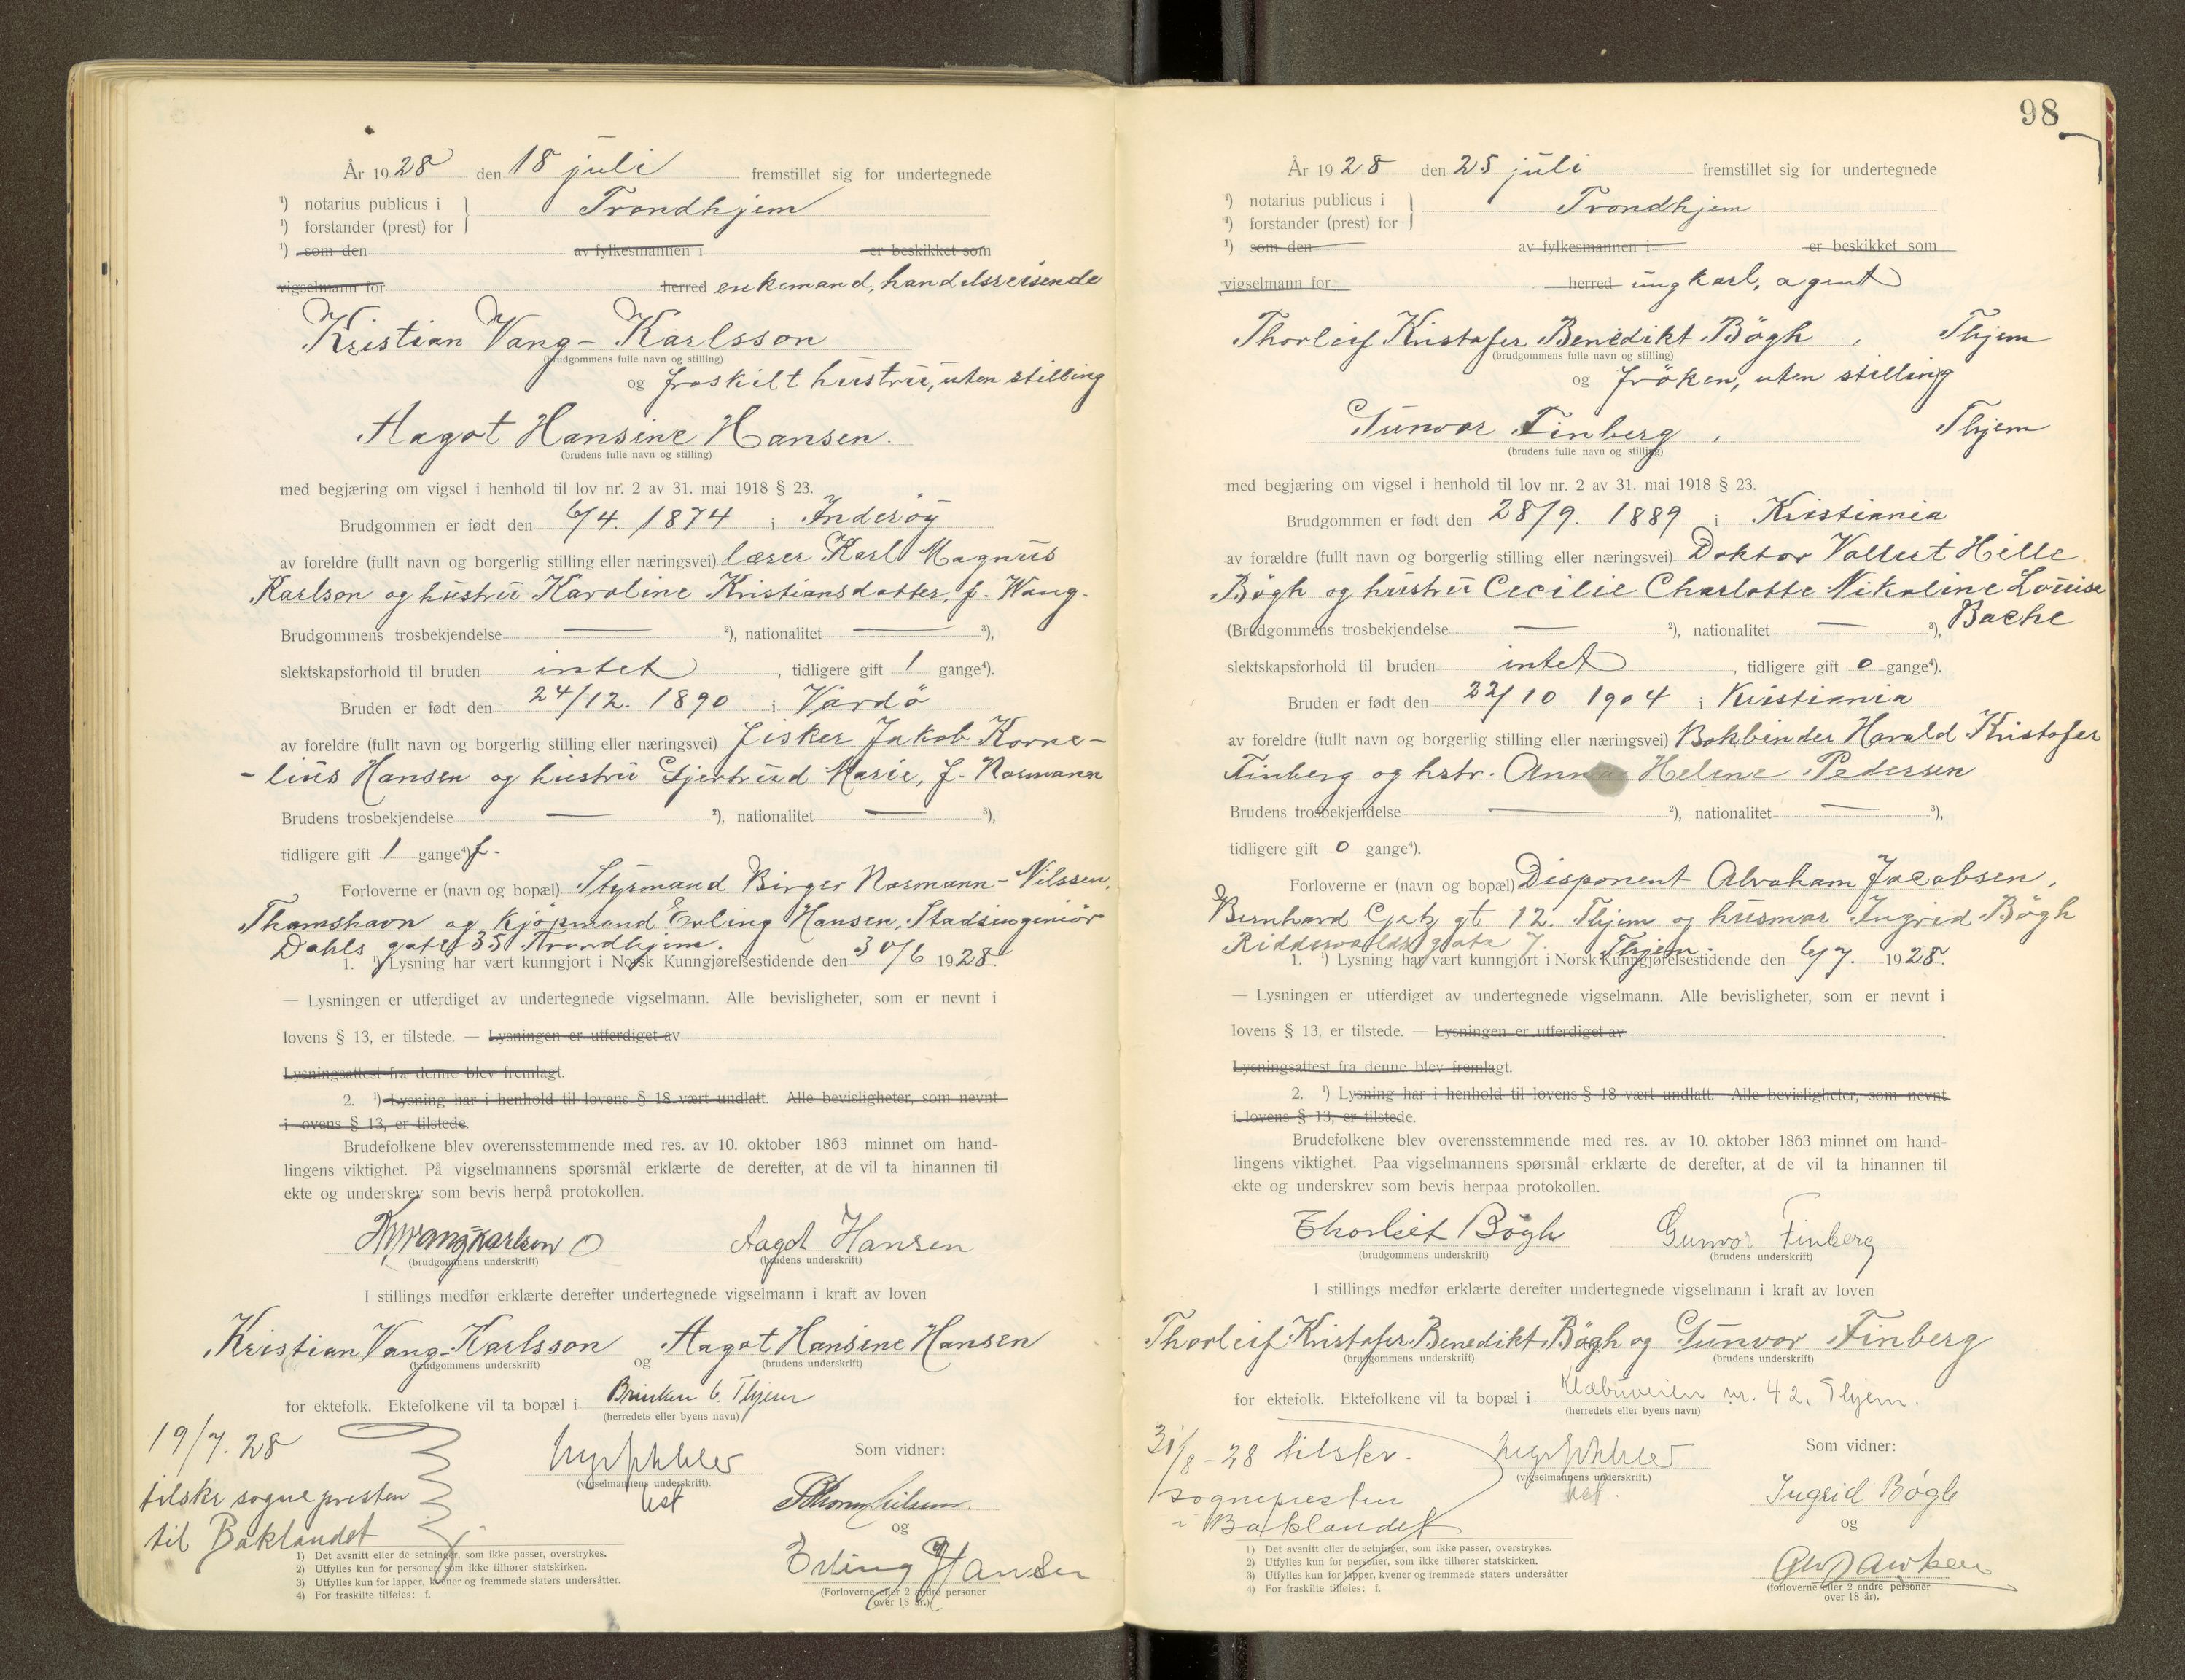 År 1928 den 18 juli fremstillet sig for undertegnede
¹) notarius publicus i
Trondhjem
¹) forstander (prest) for
¹) som den av fylkesmannen i er beskikket som
vigselmann for herred enkemand, handelsreisende
Kristian Vang-Karlsson
(brudgommens fulle navn og stilling)
og fraskilt hustru, uten stilling
Aagot Hansine Hansen.
(brudens fulle navn og stilling)
med begjæring om vigsel i henhold til lov nr. 2 av 31. mai 1918 § 23.
Brudgommen er født den 6/4. 1874 i Inderøy
av foreldre (fullt navn og borgerlig stilling eller næringsvei) lærer Karl Magnus
Karlson og hustru Karoline Kristiansdatter, f. Wang.
Brudgommens trosbekjendelse — ²), nationalitet — ³),
slektskapsforhold til bruden intet, tidligere gift 1 gange⁴).
Bruden er født den 24/12. 1890 i Vardö
av foreldre (fullt navn og borgerlig stilling eller næringsvei) fisker Jakob Korne-
-lius Hansen og hustru Gjertrud Marie, f. Normann
Brudens trosbekjendelse — ²), nationalitet — ³),
tidligere gift 1 gange⁴) f.
Forloverne er (navn og bopæl) Styrmand Birger Normann-Nilssen,
Thamshavn og kjøpmand Erling Hansen, Stadsingeniør
Dahls gate 35 Trondhjem.
1. ¹) Lysning har vært kunngjort i Norsk Kunngjørelsestidende den 30/6 1928.
— Lysningen er utferdiget av undertegnede vigselmann. Alle bevisligheter, som er nevnt i
lovens § 13, er tilstede. — Lysningen er utferdiget av
Lysningsattest fra denne blev fremlagt.
2. ¹) Lysning har i henhold til lovens § 18 vært undlatt. Alle bevisligheter, som nevnt
i ovens § 13, er tilstede.
Brudefolkene blev overensstemmende med res. av 10. oktober 1863 minnet om hand-
lingens viktighet. På vigselmannens spørsmål erklærte de derefter, at de vil ta hinannen til
ekte og underskrev som bevis herpå protokollen.
Kr. Vang Karlson Aagot Hansen
(brudgommens underskrift) (brudens underskrift)
I stillings medfør erklærte derefter undertegnede vigselmann i kraft av loven
Kristian Vang-Karlsson og Aagot Hansine Hansen
(brudgommens underskrift) (brudens underskrift)
for ektefolk. Ektefolkene vil ta bopæl i Brinken 6. Thjem
(herredets eller byens navn)
19/7. 28
tilskr sognepresten
til Baklandet
(vigselmannens underskrift).
Som vidner:
og
Erling Hansen
(Forloverne eller 2 andre personer
over 18 år.)
1) Det avsnitt eller de setninger, som ikke passer, overstrykes.
2) Utfylles kun for personer, som ikke tilhører statskirken.
3) Utfylles kun for lapper, kvener og fremmede staters undersåtter.
4) For fraskilte tilføies: f.
98
År 1928 den 25 juli fremstillet sig for undertegnede
¹) notarius publicus i
Trondhjem
¹) forstander (prest) for
¹) som den av fylkesmannen i er beskikket som
vigselmann for herred ungkarl, agent
Thorleif Kristofer Benedikt Bögh, Thjem
(brudgommens fulle navn og stilling)
og fröken, uten stilling
Gunvor Finberg, Thjem
(brudens fulle navn og stilling)
med begjæring om vigsel i henhold til lov nr. 2 av 31. mai 1918 § 23.
Brudgommen er født den 28/9. 1889 i Kristiania
av forældre (fullt navn og borgerlig stilling eller næringsvei) Doktor Vallert Hille
Bögh og hustru Cecilie Charlotte Nikoline Louise
Bache
(Brudgommens trosbekjendelse — ²), nationalitet — ³),
slektskapsforhold til bruden intet, tidligere gift 0 gange⁴).
Bruden er født den 22/10 1904 i Kristiania
av foreldre (fullt navn og borgerlig stilling eller næringsvei) Bokbinder Harald Kristofer
Finberg og hstr. Anna Helene Pedersen
Brudens trosbekjendelse — ²), nationalitet — ³),
tidligere gift 0 gange⁴).
Forloverne er (navn og bopæl) Disponent Abraham Jacobsen,
E Bernhard Getz gt 12. Thjem og husmor Ingrid Bögh
Riddervoldsgata 7. Thjem.
1. ¹) Lysning har vært kunngjort i Norsk Kunngjørelsestidende den 6/7. 1928.
— Lysningen er utferdiget av undertegnede vigselmann. Alle bevisligheter, som er nevnt i
lovens § 13, er tilstede. — Lysningen er utferdiget av
Lysningsattest fra denne blev fremlagt.
2. ¹) Lysning har i henhold til lovens § 18 vært undlatt. Alle bevisligheter, som nevnt
i lovens § 13, er tilstede.
Brudefolkene blev overensstemmende med res. av 10. oktober 1863 minnet om hand-
lingens viktighet. Paa vigselmannens spørsmål erklærte de derefter, at de vil ta hinannen til
ekte og underskrev som bevis herpaa protokollen.
Thorleif Bögh Gunvor Finberg
(brudgommens underskrift) (brudens underskrift)
I stillings medfør erklærte derefter undertegnede vigselmann i kraft av loven
Thorleif Kristofer Benedikt Bögh og Gunvor Finberg
(brudgommens underskrift) (brudens underskrift)
for ektefolk. Ektefolkene vil ta bopæl i Klæbuveien nr. 42, Thjem.
(herredets eller byens navn)
31/8-28 tilskr.
sognepresten
i Baklandet
(vigselmannens underskrift.)
Som vidner:
Ingrid Bögh
og
(forloverne eller 2 andre personer
over 18 år).
1) Det avsnitt eller de setninger, som ikke passer, overstrykes.
2) Utfylles kun for personer, som ikke tilhører statskirken.
3) Utfylles kun for lapper, kvener og fremmede staters undersåtter
4) For fraskilte tilføies: f.